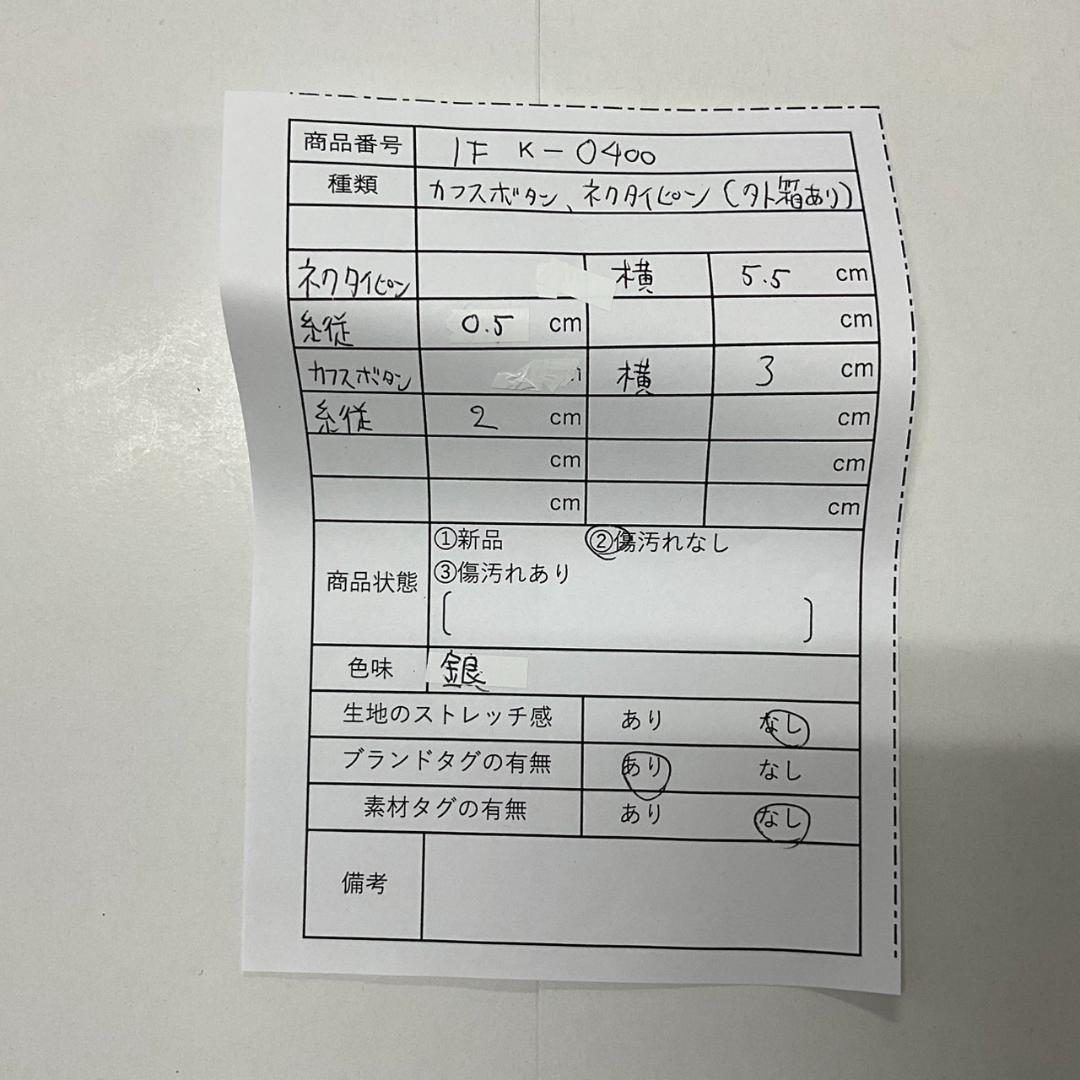 商品番号 1F K-0400
種類 カフスボタン、ネクタイピン(外箱あり)
ネクタイピン 横 5.5 cm
縦 0.5 cm cm
カフスボタン 横 3 cm
縦 2 cm cm
cm cm
cm cm
商品状態 ①新品 ②傷汚れなし
③傷汚れあり
[ ]
色味 銀
生地のストレッチ感 あり なし
ブランドタグの有無 あり なし
素材タグの有無 あり なし
備考